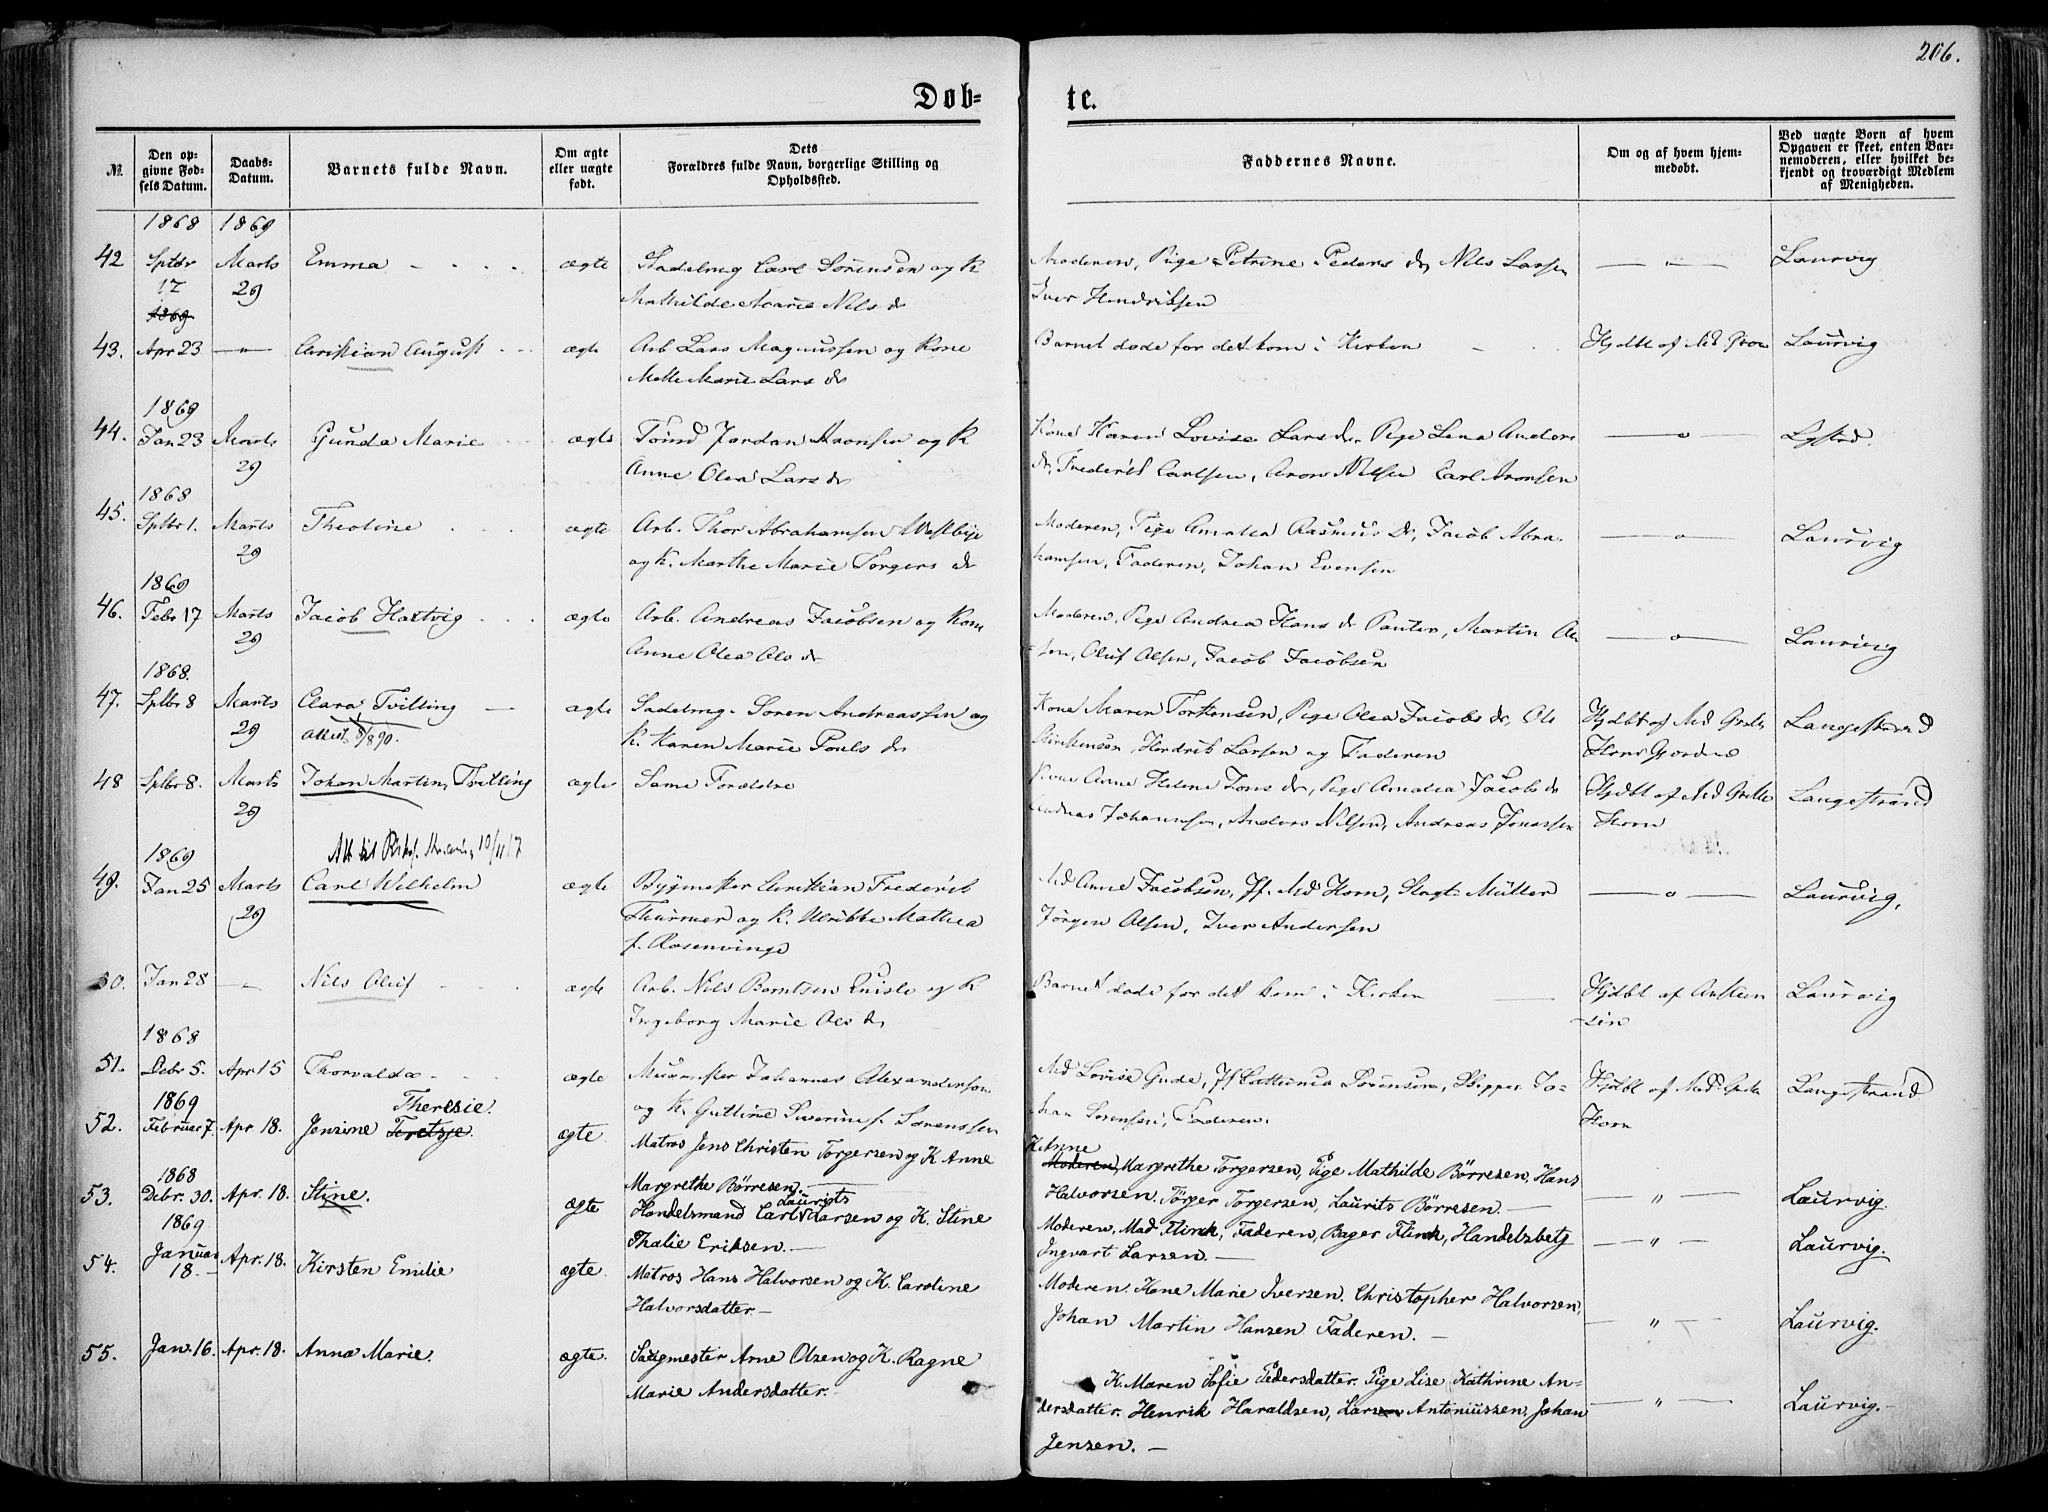 206.
Døb-
te.
№
Den op-
givne Fød-
sels Datum.
Daabs-
Datum.
Barnets fulde Navn.
Om ægte
eller uægte
født.
Dets
Forældres fulde Navn, borgerlige Stilling og
Opholdssted.
Faddernes Navne.
Om og af hvem hjem-
medøbt.
Ved uægte Børn af hvem
Opgaven er skeet, enten Bar-
nemoderen, eller hvilket be-
kjendt og troværdigt Medlem
af Menigheden.
1868 1869
42 Sptbr Marts Emma ægte Sadelmg Carl Sörensen og K Moderen, Pige Petrine Peders dr Nils Larsen Laurvig
17 29 Mathilde Marie Nils dr Iver Hendriksen
1869
43. Apr 23 — " — Christian August ægte Arb Lars Magnussen og Kone Barnet döde för det kom i Kirken Hjdbt af Md Laurvig
Marie Lars dr
1869
44. Jan 23 Marts Gunda Marie ægte Jordan Aronsen og K Kone Karen Lovise Lars dr, Pige Lena Anders
29 Anne Olea Lars dr dr, Frederik Carlsen, Aron Nilsen Carl Aronsen
1868
45. Sptbr 1. Marts Theoline ægte Arb. Thor Abrahamsen Westbye Moderen, Pige Amalia Rasmus Dr, Jacob Abra- Laurvig
29 og K. Marthe Marie Torgers dr hamsen, Faderen, Johan Evensen
1869
46. Febr 17 Marts Jacob Hartvig ægte Arb. Andreas Jacobsen og Kone Moderen, Pige Andrea Hans dr Martin Ol- Laurvig
29 Anne Olea Ols dr sen, Oluf Olsen, Jacob Jacobsen
1868.
47. Sptbr 8 Marts Clara, Tvilling ægte Sadelmg. Sören Andreassen og Kone Maren Torkensen, Pige Olea Jacobs dr, Ole Hjdbt af Md Grethe Langestrand
29 K. Karen Marie Pouls dr Hendrik Larsen og Faderen Horn
48 Sptbr 8. Marts Johan Martin, Tvilling ægte Same Forældre Kone Anne Helene Jons dr, Pige Amalia Jacobs dr Hjdbt af Md Grethe Langestrand
29 Johannsen, Anders Nilsen, Andreas Jonassen Horn
1869 10/11 17
49. Jan 25 Marts Carl Wilhelm ægte Bygmester Christian Frederik Md Anne Jacobsen, Jf. Md Horn, Slagt. Müller Laurvig,
29 Thürmer og K. Ulrikke Mathea Jörgen Olsen, Iver Andersen
f. Rosenvinge
50. Jan 28 — " — Nils Oluf ægte Arb. Nils Berntsen og K Barnet döde för det kom i Kirken Hjdbt af Laurvig
Ingeborg Marie Ols dr
1868
51. Debr 5. Apr 15 Thorvalda ægte Murmester Johannes Alexandersen Md Lovise Gude, Jf Sörensen, Skipper Jo- Hjdbt af Md. Grete Langestrand
og K. Severine f. Sörenssen han Sörensen, Faderen. Horn
1869 Theresie.
52. Februar 7. Apr. 18. Jensine Teretsje. ægte. Matros Jens Christen Torgersen og K Anne K. Anne
Margrethe Börresen. — Moderen, Margrethe Torgersen, Pige Mathilde Börresen, Hans
Halvorsen. Törger Torgersen, Laurits Börresen. — — " — Laurvig.
1868
53. Debr. 30. Apr. 18. Stine. ægte Handelsmand Carl Laurigts Larsen og K. Stine Moderen, Mad. Flink, Faderen, Bager Flink, Handelsbetj — " — Laurvig.
Thalie Eriksen. — Ingvart Larsen. —
1869
54. Januar Apr. 18. Kirsten Emilie ægte. Matros Hans Halvorsen og K. Caroline Moderen. Kone Marie Iversen. Christopher Halvorsen,
18. — Halvorsdatter — Johan Martin Hansen Faderen. — — " — Laurvig.
55. Jan. 16. Apr. 18. Anna Marie. ægte. Saugmester Arne Olsen og K. Ragne K. Maren Sofie Pedersdatter. Pige Lise Kathrine An-
Marie Andersdatter. dersdatter. Henrik Haraldsen, Larsen Antoniussen, Johan — " — Laurvig. —
Jensen. —